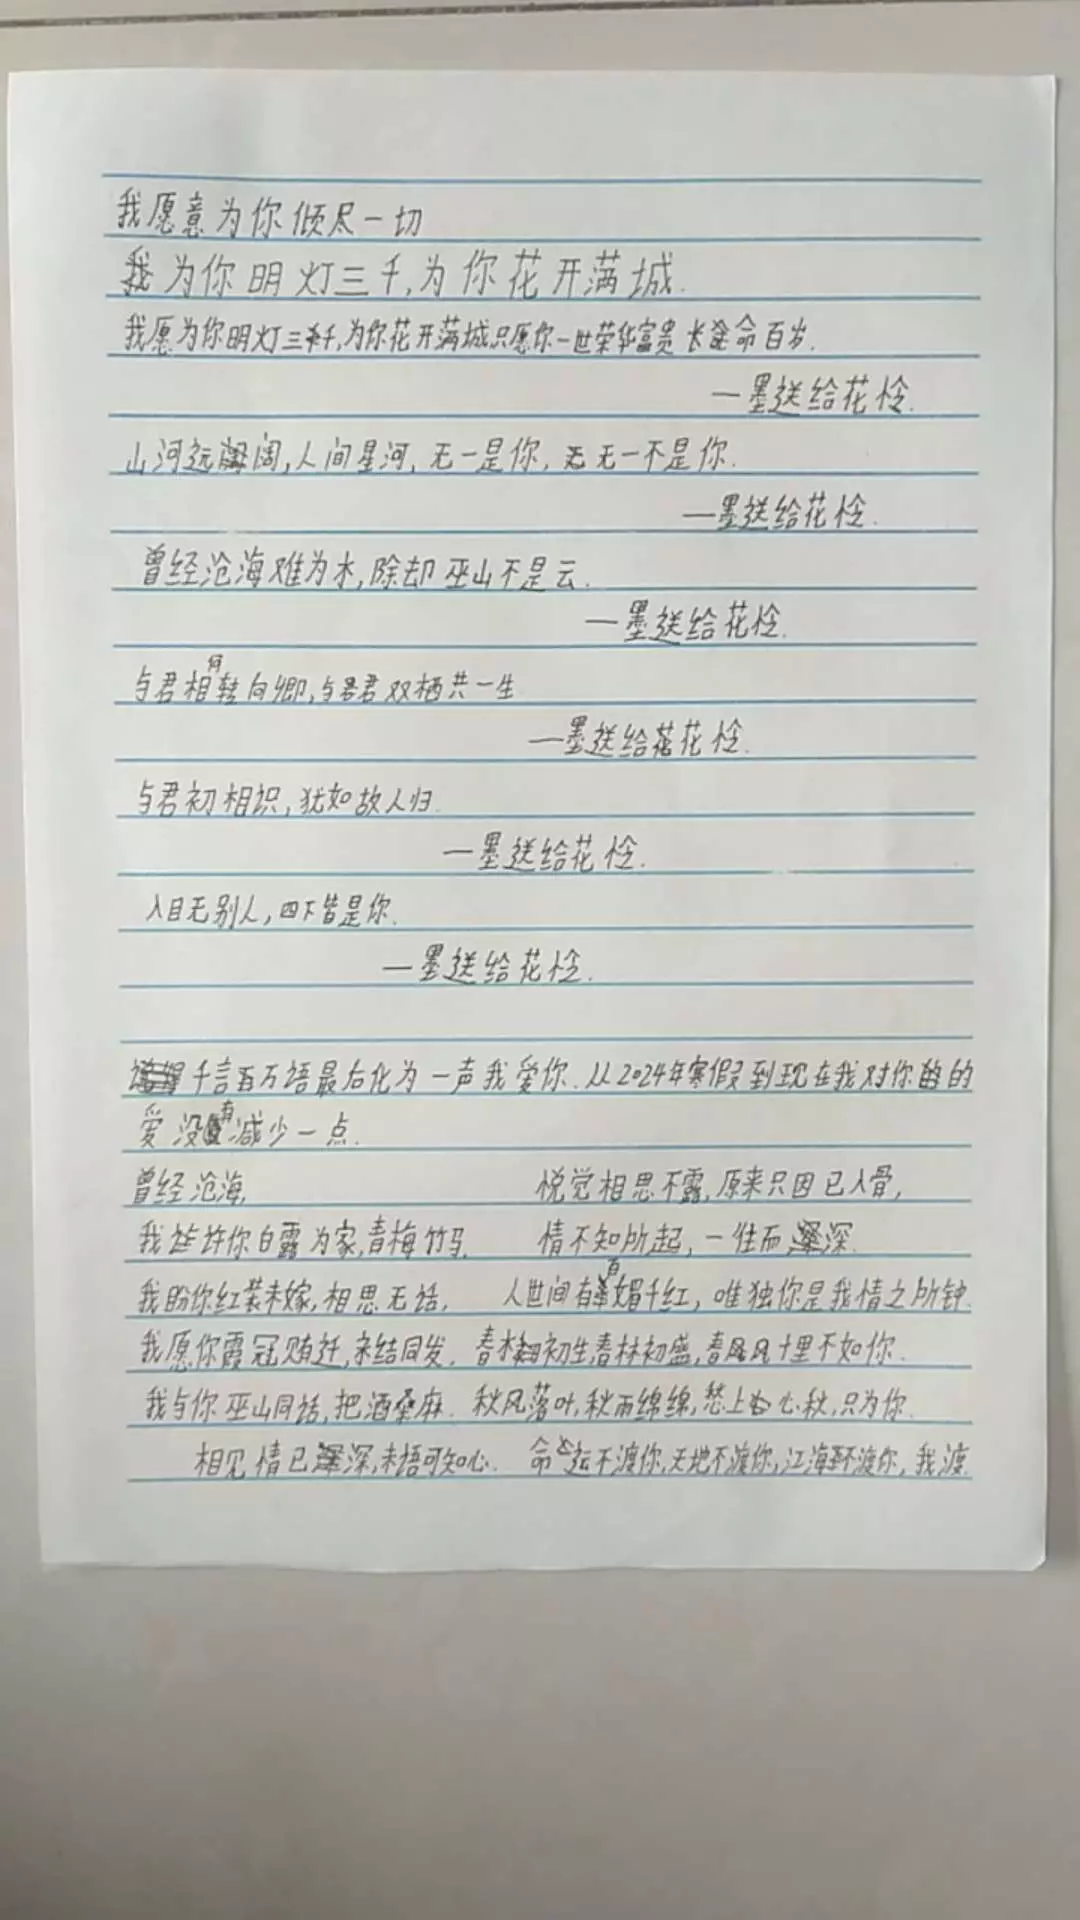 我愿意为你倾尽一切
我为你明灯三千,为你花开满城.
我愿为你明灯三千,为你花开满城只愿你一世荣华富贵长命百岁.
—墨送给花怜.
山河远阔,人间星河,无一是你,无一不是你.
—墨送给花怜.
曾经沧海难为水,除却巫山不是云.
—墨送给花怜.
与君相何转向卿,与君双栖共一生
—墨送给花怜.
与君初相识,犹如故人归.
—墨送给花怜.
入目无别人,四下皆是你.
—墨送给花怜.
千言万语最后化为一声我爱你.从2024年寒假到现在我对你的
爱没有减少一点.
曾经沧海, 悦觉相思不露,原来只因已入骨,
我许你白露为家,青梅竹马, 情不知所起,一往而深.
我盼你红装未嫁,相思无话, 人世间有百媚千红,唯独你是我情之所钟.
我愿你霞冠贿迁,未结同发. 春初生,春林初盛,春风十里不如你.
我与你巫山同话,把酒桑麻. 秋风落叶,秋雨绵绵,愁上心秋,只为你.
相见情已深,未语可知心. 命运不渡你,天地不渡你,江海不渡你,我渡.